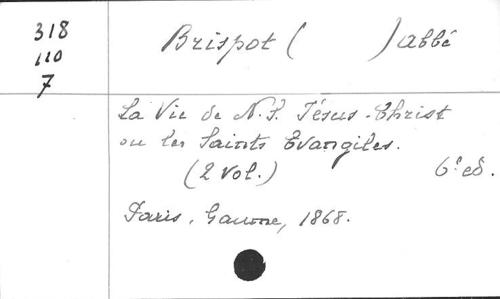 318
110
7
Brispot (      ) abbé
La Vie de N. S. Jésus-Christ
ou les Saints Evangiles.
(2 vol.) 6e ed.
Paris, Gaume, 1868.